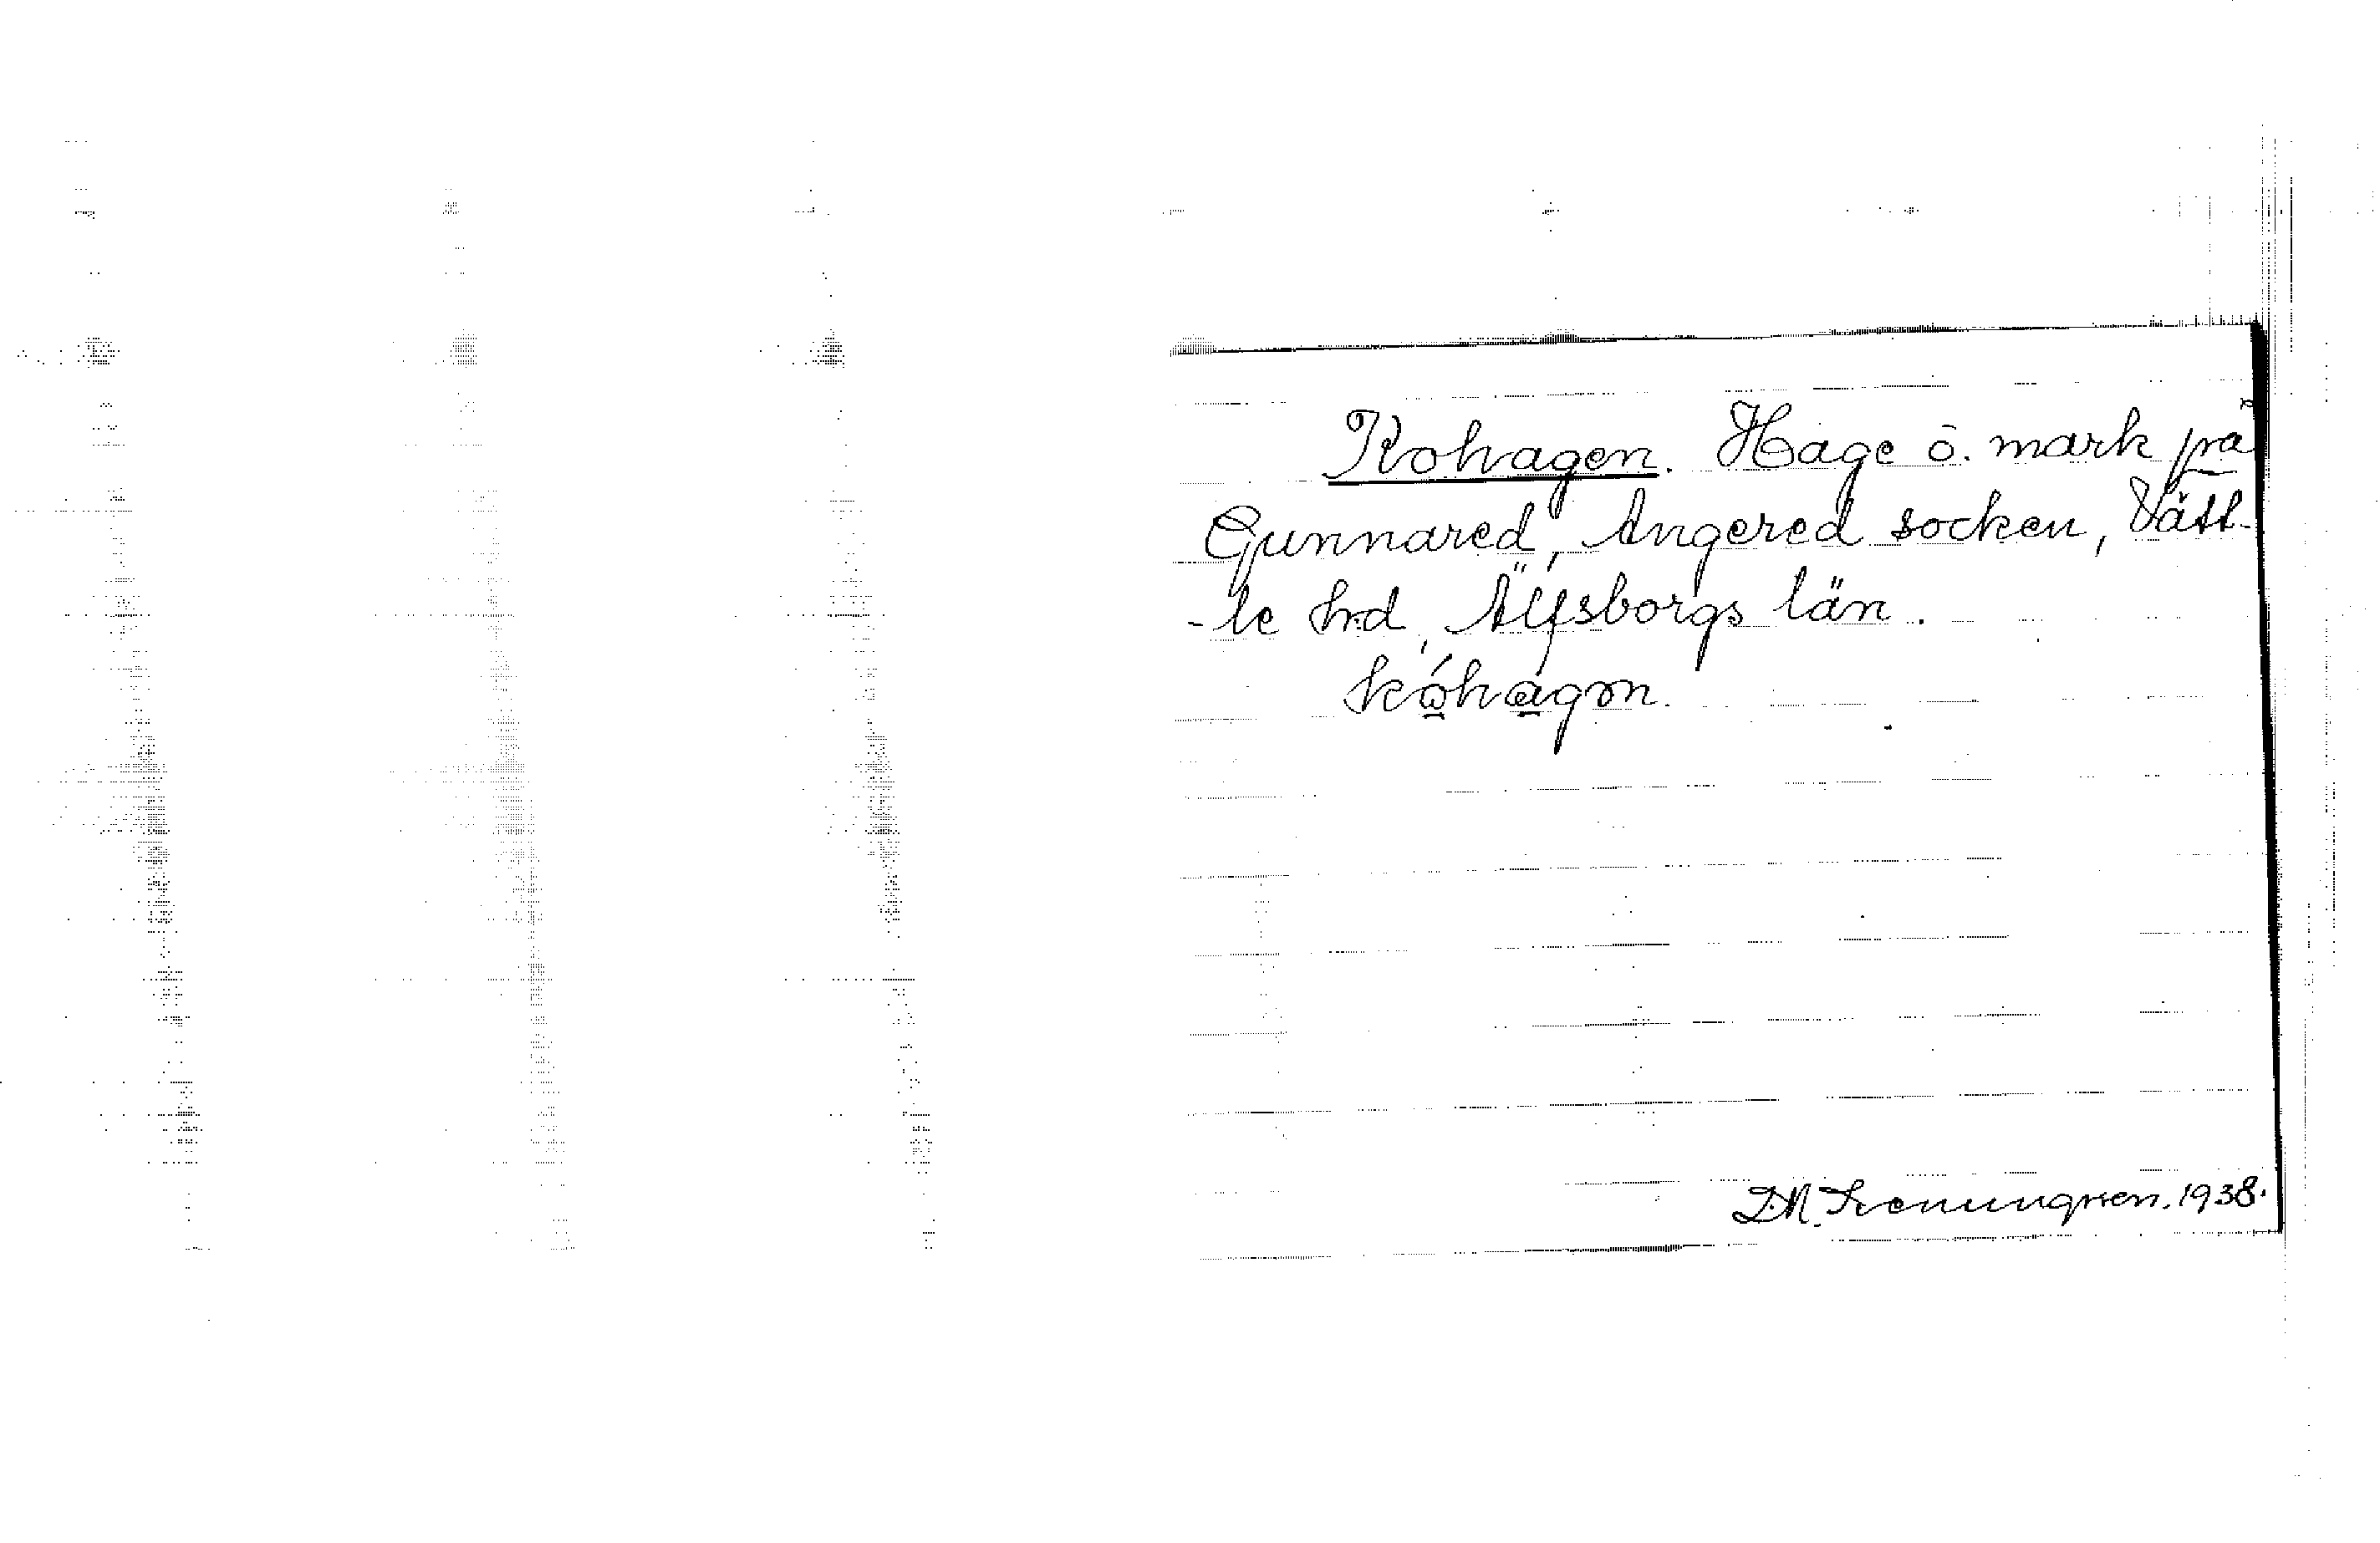 Kohagen. Hage o. mark på
Gunnared, Angered socken, Vätt-
-le hd, Älfsborgs län.
kóhàgɘn.
1938.